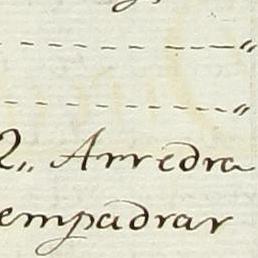 ------"
------"
2,, Arredra
empadrar